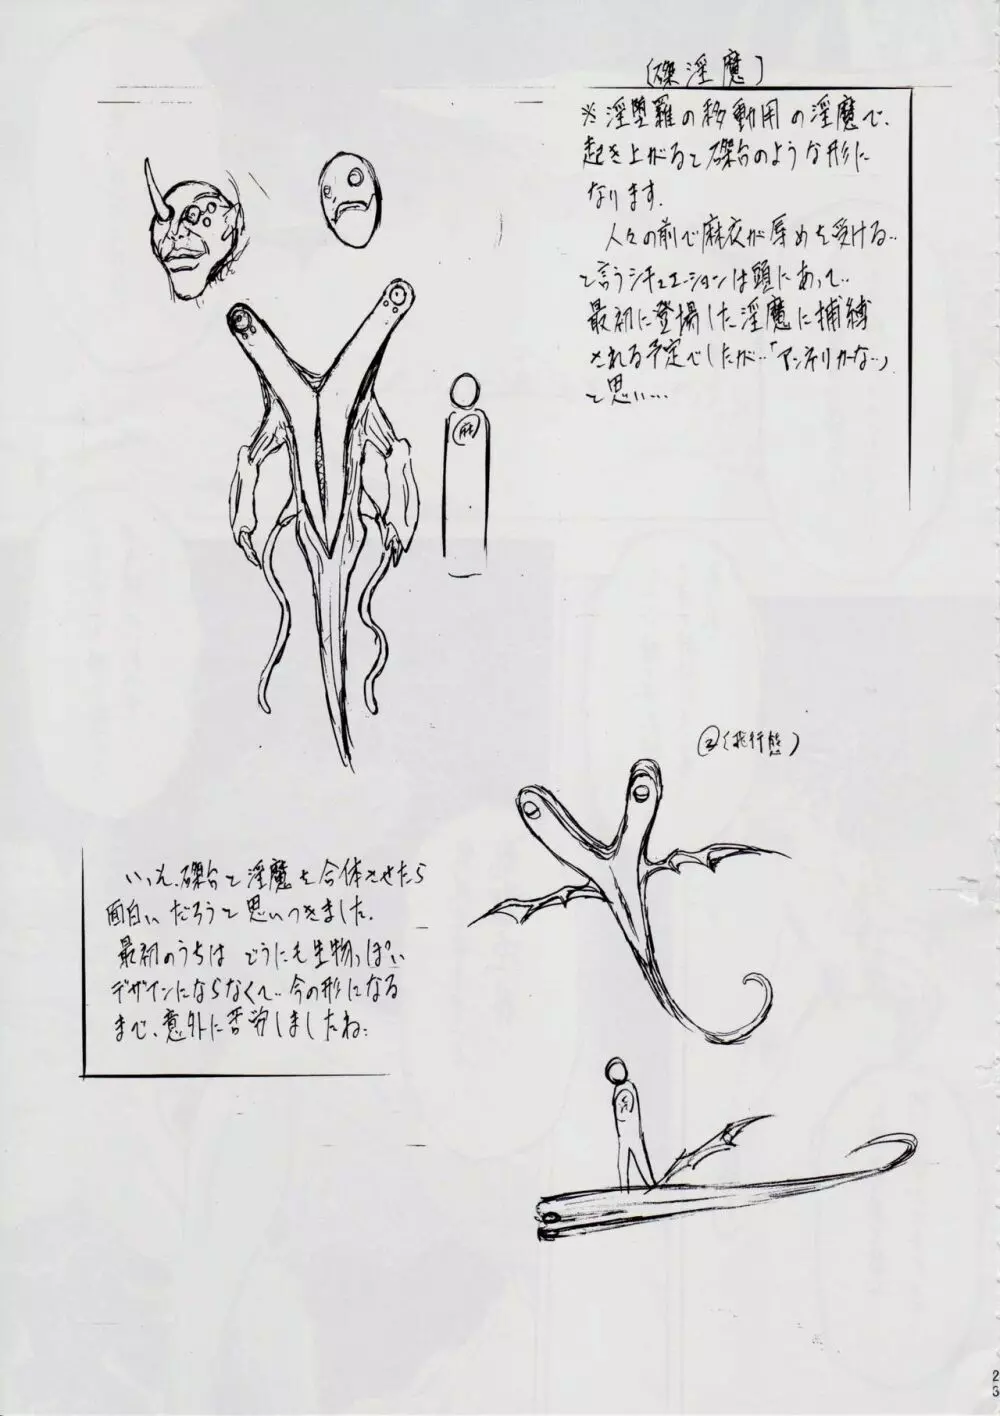 (磔淫魔)
※淫堕羅の移動用の淫魔で、
起き上がると磔台のような形に
なります。
人々の前で麻衣が辱めを受ける…
と言うシチュエーションは頭にあって…
最初に登場した淫魔に捕縛
される予定でしたが…「アンチリかーな…」
と思い…
麻
②(飛行態)
いっそ、磔台と淫魔を合体させたら
面白いだろうと思いつきました。
最初のうちは どうにも生物っぽい
デザインにならなくて…今の形になる
まで、意外に苦労しましたね…
23